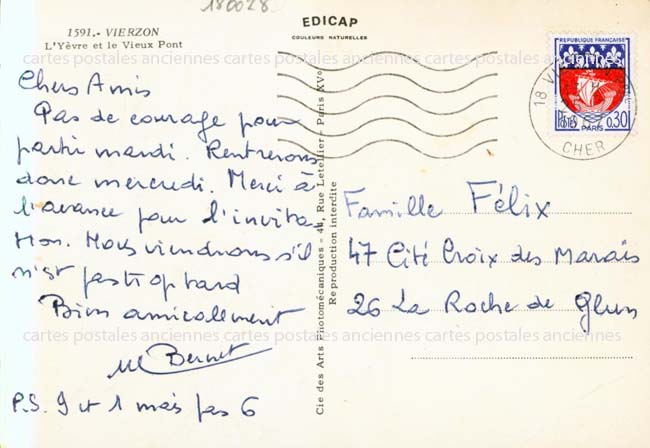 180028
EDICAP
COULEURS NATURELLES
1591.- VIERZON
L'Yèvre et le Vieux Pont
cartes postales anciennes cartes postales anciennes
Chers Amis
Pas de courage pour
partir mardi. Rentrerons
donc mercredi. Merci à
l'avance pour l'invita
tion. Nous viendrons s'il
n'est pas trop tard
Bien amicalement
M Bernet
P.S. 9 et 1 mais pas 6
Cie des Arts Photomécaniques - 44, Rue Letellier - Paris XVe
Reproduction interdite
REPUBLIQUE FRANÇAISE
POSTES 0,30
PARIS
18
CHER
Famille Félix
47 Cité Croix des Marais
26 La Roche de Glun
cartes postales anciennes cartes postales anciennes
cartes postales anciennes cartes postales anciennes